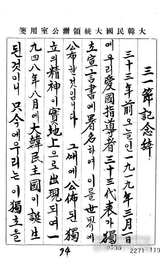 大韓民國大統領官公室用箋
三一節記念辭
三十三年前오늘인一九一九年三月一日
에우리愛國指導者三十三代表가獨
立宣言書에署名하여이를世界에
公布한것입니다 그때에公佈된獨
立의精神이實地上으로出現되여一
九四八年八月에大韓民主國이誕生
된것이니 只今에우리는이獨立을
94
2271 110